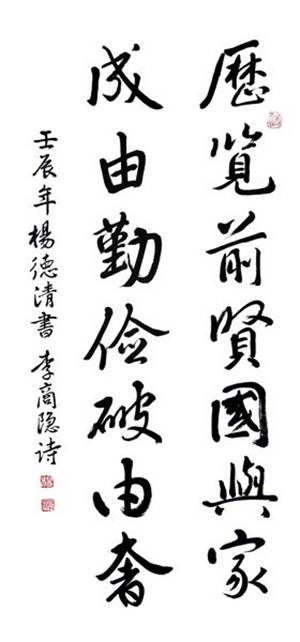 歷覧前賢國與家
成由勤儉破由奢
壬辰年楊德清書 李商隐诗